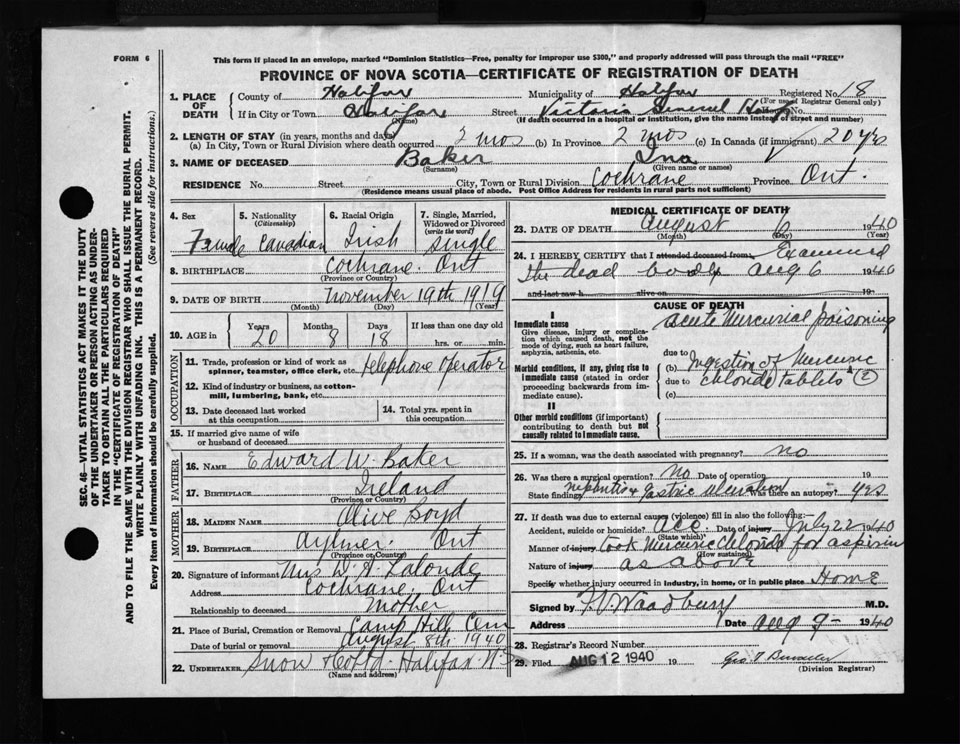 FORM 6
This form if placed in an envelope, marked "Dominion Statistics—Free, penalty for improper use $300," and properly addressed will pass through the mail "FREE"
PROVINCE OF NOVA SCOTIA—CERTIFICATE OF REGISTRATION OF DEATH
SEC. 46—VITAL STATISTICS ACT MAKES IT THE DUTY
OF THE UNDERTAKER OR PERSON ACTING AS UNDER-
TAKER TO OBTAIN ALL THE PARTICULARS REQUIRED
IN THE "CERTIFICATE OF REGISTRATION OF DEATH"
AND TO FILE THE SAME WITH THE DIVISION REGISTRAR WHO SHALL ISSUE THE BURIAL PERMIT.
WRITE PLAINLY WITH UNFADING INK. THIS IS A PERMANENT RECORD.
Every item of information should be carefully supplied. (See reverse side for instructions.)
1. PLACE OF DEATH
County of Halifax Municipality of Halifax Registered No. 18
(For use of Registrar General only)
If in City or Town Halifax Street Victoria General Hosp No.
(Name) (If death occurred in a hospital or institution, give the name instead of street and number)
2. LENGTH OF STAY (in years, months and days)
(a) In City, Town or Rural Division where death occurred 2 mos (b) In Province 2 mos (c) In Canada (if immigrant) 20 yrs
3. NAME OF DECEASED Baker Ina
(Surname) (Given name or names)
RESIDENCE No. Street City, Town or Rural Division Cochrane Province Ont.
(Residence means usual place of abode. Post Office Address for residents in rural parts not sufficient)
4. Sex Female
5. Nationality (Citizenship) Canadian
6. Racial Origin Irish
7. Single, Married, Widowed or Divorced (write the word) Single
8. BIRTHPLACE Cochrane. Ont
(Province or Country)
9. DATE OF BIRTH November 19th 1919
(Month) (Day) (Year)
10. AGE in Years 20 Months 8 Days 18 If less than one day old hrs. or min.
OCCUPATION
11. Trade, profession or kind of work as spinner, teamster, office clerk, etc. Telephone Operator
12. Kind of industry or business, as cotton-mill, lumbering, bank, etc.
13. Date deceased last worked at this occupation
14. Total yrs. spent in this occupation
15. If married give name of wife or husband of deceased
FATHER
16. NAME Edward W. Baker
17. BIRTHPLACE Ireland
(Province or Country)
MOTHER
18. MAIDEN NAME Olive Boyd
19. BIRTHPLACE Aylmer. Ont
(Province or Country)
20. Signature of informant Mrs W. A. Lalonde
Address Cochrane, Ont
Relationship to deceased Mother
21. Place of Burial, Cremation or Removal Camp Hill Cem
Date of burial or removal August 8th 1940
22. UNDERTAKER Snow & Co Ltd. Halifax N.S
(Name and address)
MEDICAL CERTIFICATE OF DEATH
23. DATE OF DEATH August 6 1940
(Month) (Day) (Year)
24. I HEREBY CERTIFY that I attended deceased from: Examined
The dead body Aug 6 1940
and last saw h alive on 19
CAUSE OF DEATH
I
Immediate cause
Give disease, injury or complication which caused death, not the mode of dying, such as heart failure, asphyxia, asthenia, etc.
Acute Mercurial poisoning
due to
Morbid conditions, if any, giving rise to immediate cause (stated in order proceeding backwards from immediate cause).
(b) Ingestion of Mercuric
due to Chloride Tablets (2)
(c)
II
Other morbid conditions (if important) contributing to death but not causally related to immediate cause.
25. If a woman, was the death associated with pregnancy? no
26. Was there a surgical operation? No Date of operation 19
State findings Nephritis & Gastric Ulceration Was there an autopsy? yes
27. If death was due to external causes (violence) fill in also the following:—
Accident, suicide or homicide? Acc. Date of injury July 22 1940
(State which)
Manner of injury took Mercuric Chloride for aspirin
(How sustained)
Nature of injury as above
Specify whether injury occurred in industry, in home, or in public place Home
Signed by F. V. Woodbury M.D.
Address Date Aug 9- 1940
28. Registrar's Record Number
29. Filed AUG 12 1940 19
(Division Registrar)